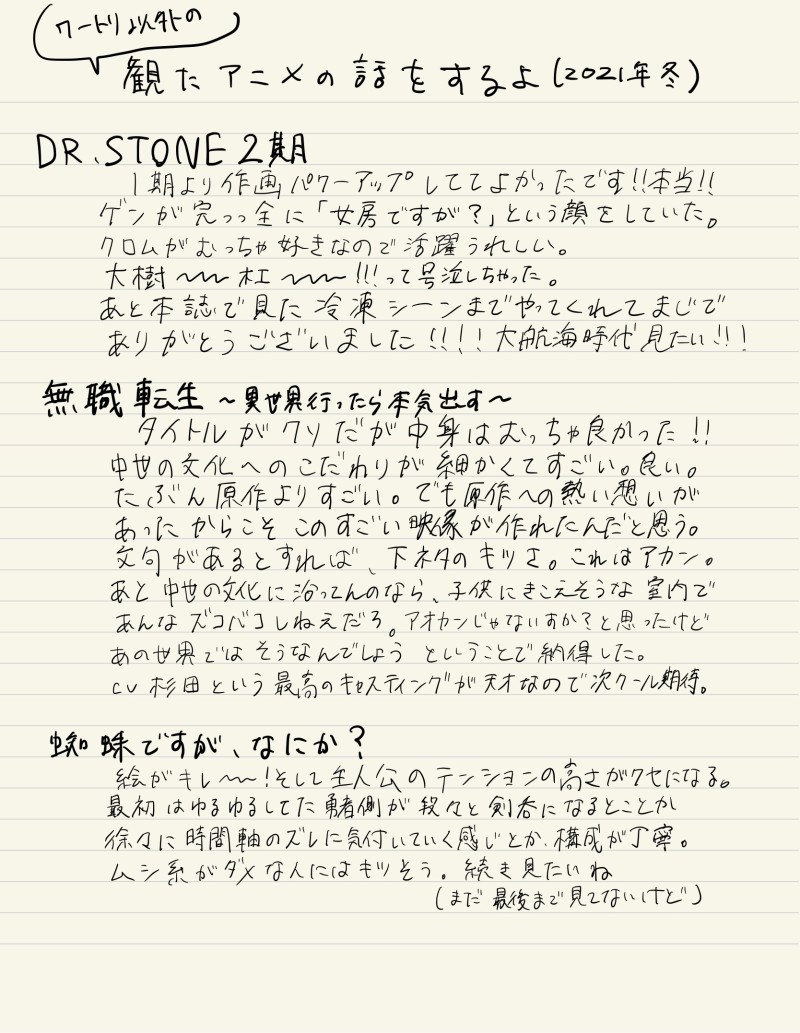 ワートリ以外の
観たアニメの話をするよ(2021年冬)
DR.STONE 2期
1期より作画パワーアップしててよかったです!!本当!!
ゲンが完っっ全に「女房ですが?」という顔をしていた。
クロムがむっちゃ好きなので活躍うれしい。
大樹〜〜杠〜〜!!!って号泣しちゃった。
あと本誌で見た冷凍シーンまでやってくれてまじで
ありがとうございました!!!!大航海時代見たい!!!
無職転生 〜異世界行ったら本気出す〜
タイトルがクソだが中身はむっちゃ良かった!!
中世の文化へのこだわりが細かくてすごい。良い。
たぶん原作よりすごい。でも原作への熱い想いが
あったからこそこのすごい映像が作れたんだと思う。
文句があるとすれば、下ネタのキツさ。これはアカン。
あと中世の文化に沿ってんのなら、子供にきこえそうな室内で
あんなズコバコしねえだろ。アオカンじゃないすか?と思ったけど
あの世界ではそうなんでしょうということで納得した。
cv杉田という最高のキャスティングが天才なので次クール期待。
蜘蛛ですが、なにか?
絵がキレ〜〜!そして主人公のテンションの高さがクセになる。
最初はゆるゆるしてた勇者側が段々と剣呑になるとことか
徐々に時間軸のズレに気付いていく感じとか、構成が丁寧。
ムシ系がダメな人にはキツそう。続き見たいね
(まだ最後まで見てないけど)